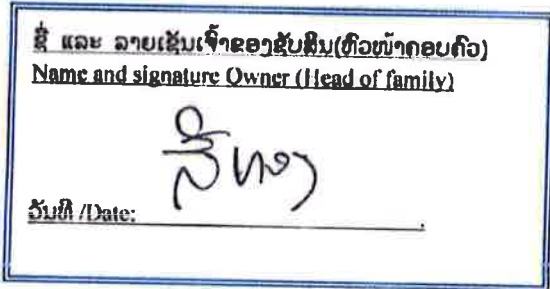 ຊື່ ແລະ ລາຍເຊັນເຈົ້າຂອງຊັບສິນ(ຫົວໜ້າຄອບຄົວ)
Name and signature Owner (Head of family)
ວັນທີ /Date: